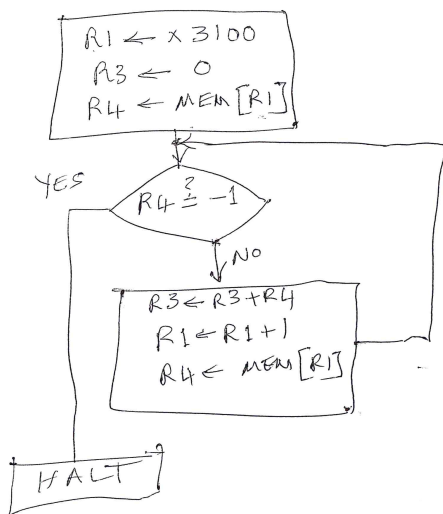 R1 ← x3100
R3 ← 0
R4 ← MEM[R1]
YES
R4 ≟ -1
NO
R3 ← R3+R4
R1 ← R1+1
R4 ← MEM[R1]
HALT